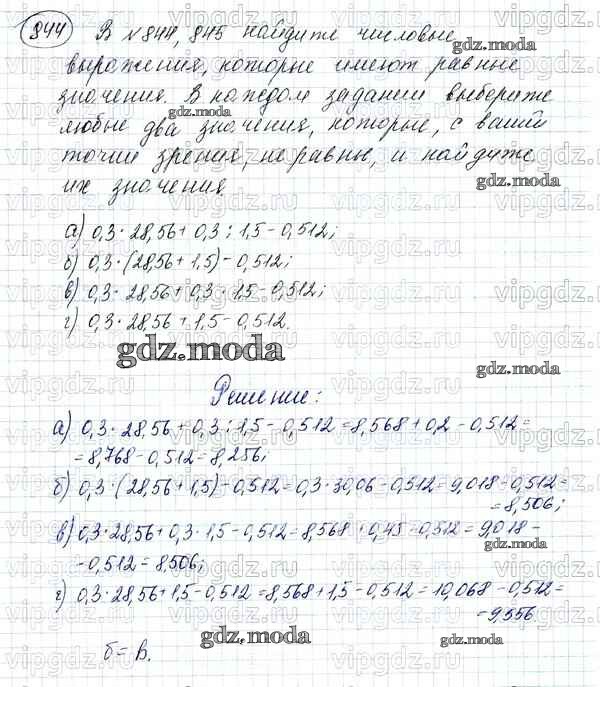 844 В №844, 845 найдите числовые
выражения, которые имеют равные
значения. В каждом задании выберите
любые два значения, которые, с вашей
точки зрения, не равны, и найдите
их значения
а) 0,3 · 28,56 + 0,3 : 1,5 - 0,512;
б) 0,3 · (28,56 + 1,5) - 0,512;
в) 0,3 · 28,56 + 0,3 · 1,5 - 0,512;
г) 0,3 · 28,56 + 1,5 - 0,512.
gdz.moda
Решение:
а) 0,3 · 28,56 + 0,3 : 1,5 - 0,512 = 8,568 + 0,2 - 0,512 =
= 8,768 - 0,512 = 8,256;
б) 0,3 · (28,56 + 1,5) - 0,512 = 0,3 · 30,06 - 0,512 = 9,018 - 0,512 =
= 8,506;
в) 0,3 · 28,56 + 0,3 · 1,5 - 0,512 = 8,568 + 0,45 - 0,512 = 9,018 -
- 0,512 = 8,506;
г) 0,3 · 28,56 + 1,5 - 0,512 = 8,568 + 1,5 - 0,512 = 10,068 - 0,512 =
= 9,556.
б = в.
gdz.moda
vipgdz.ru